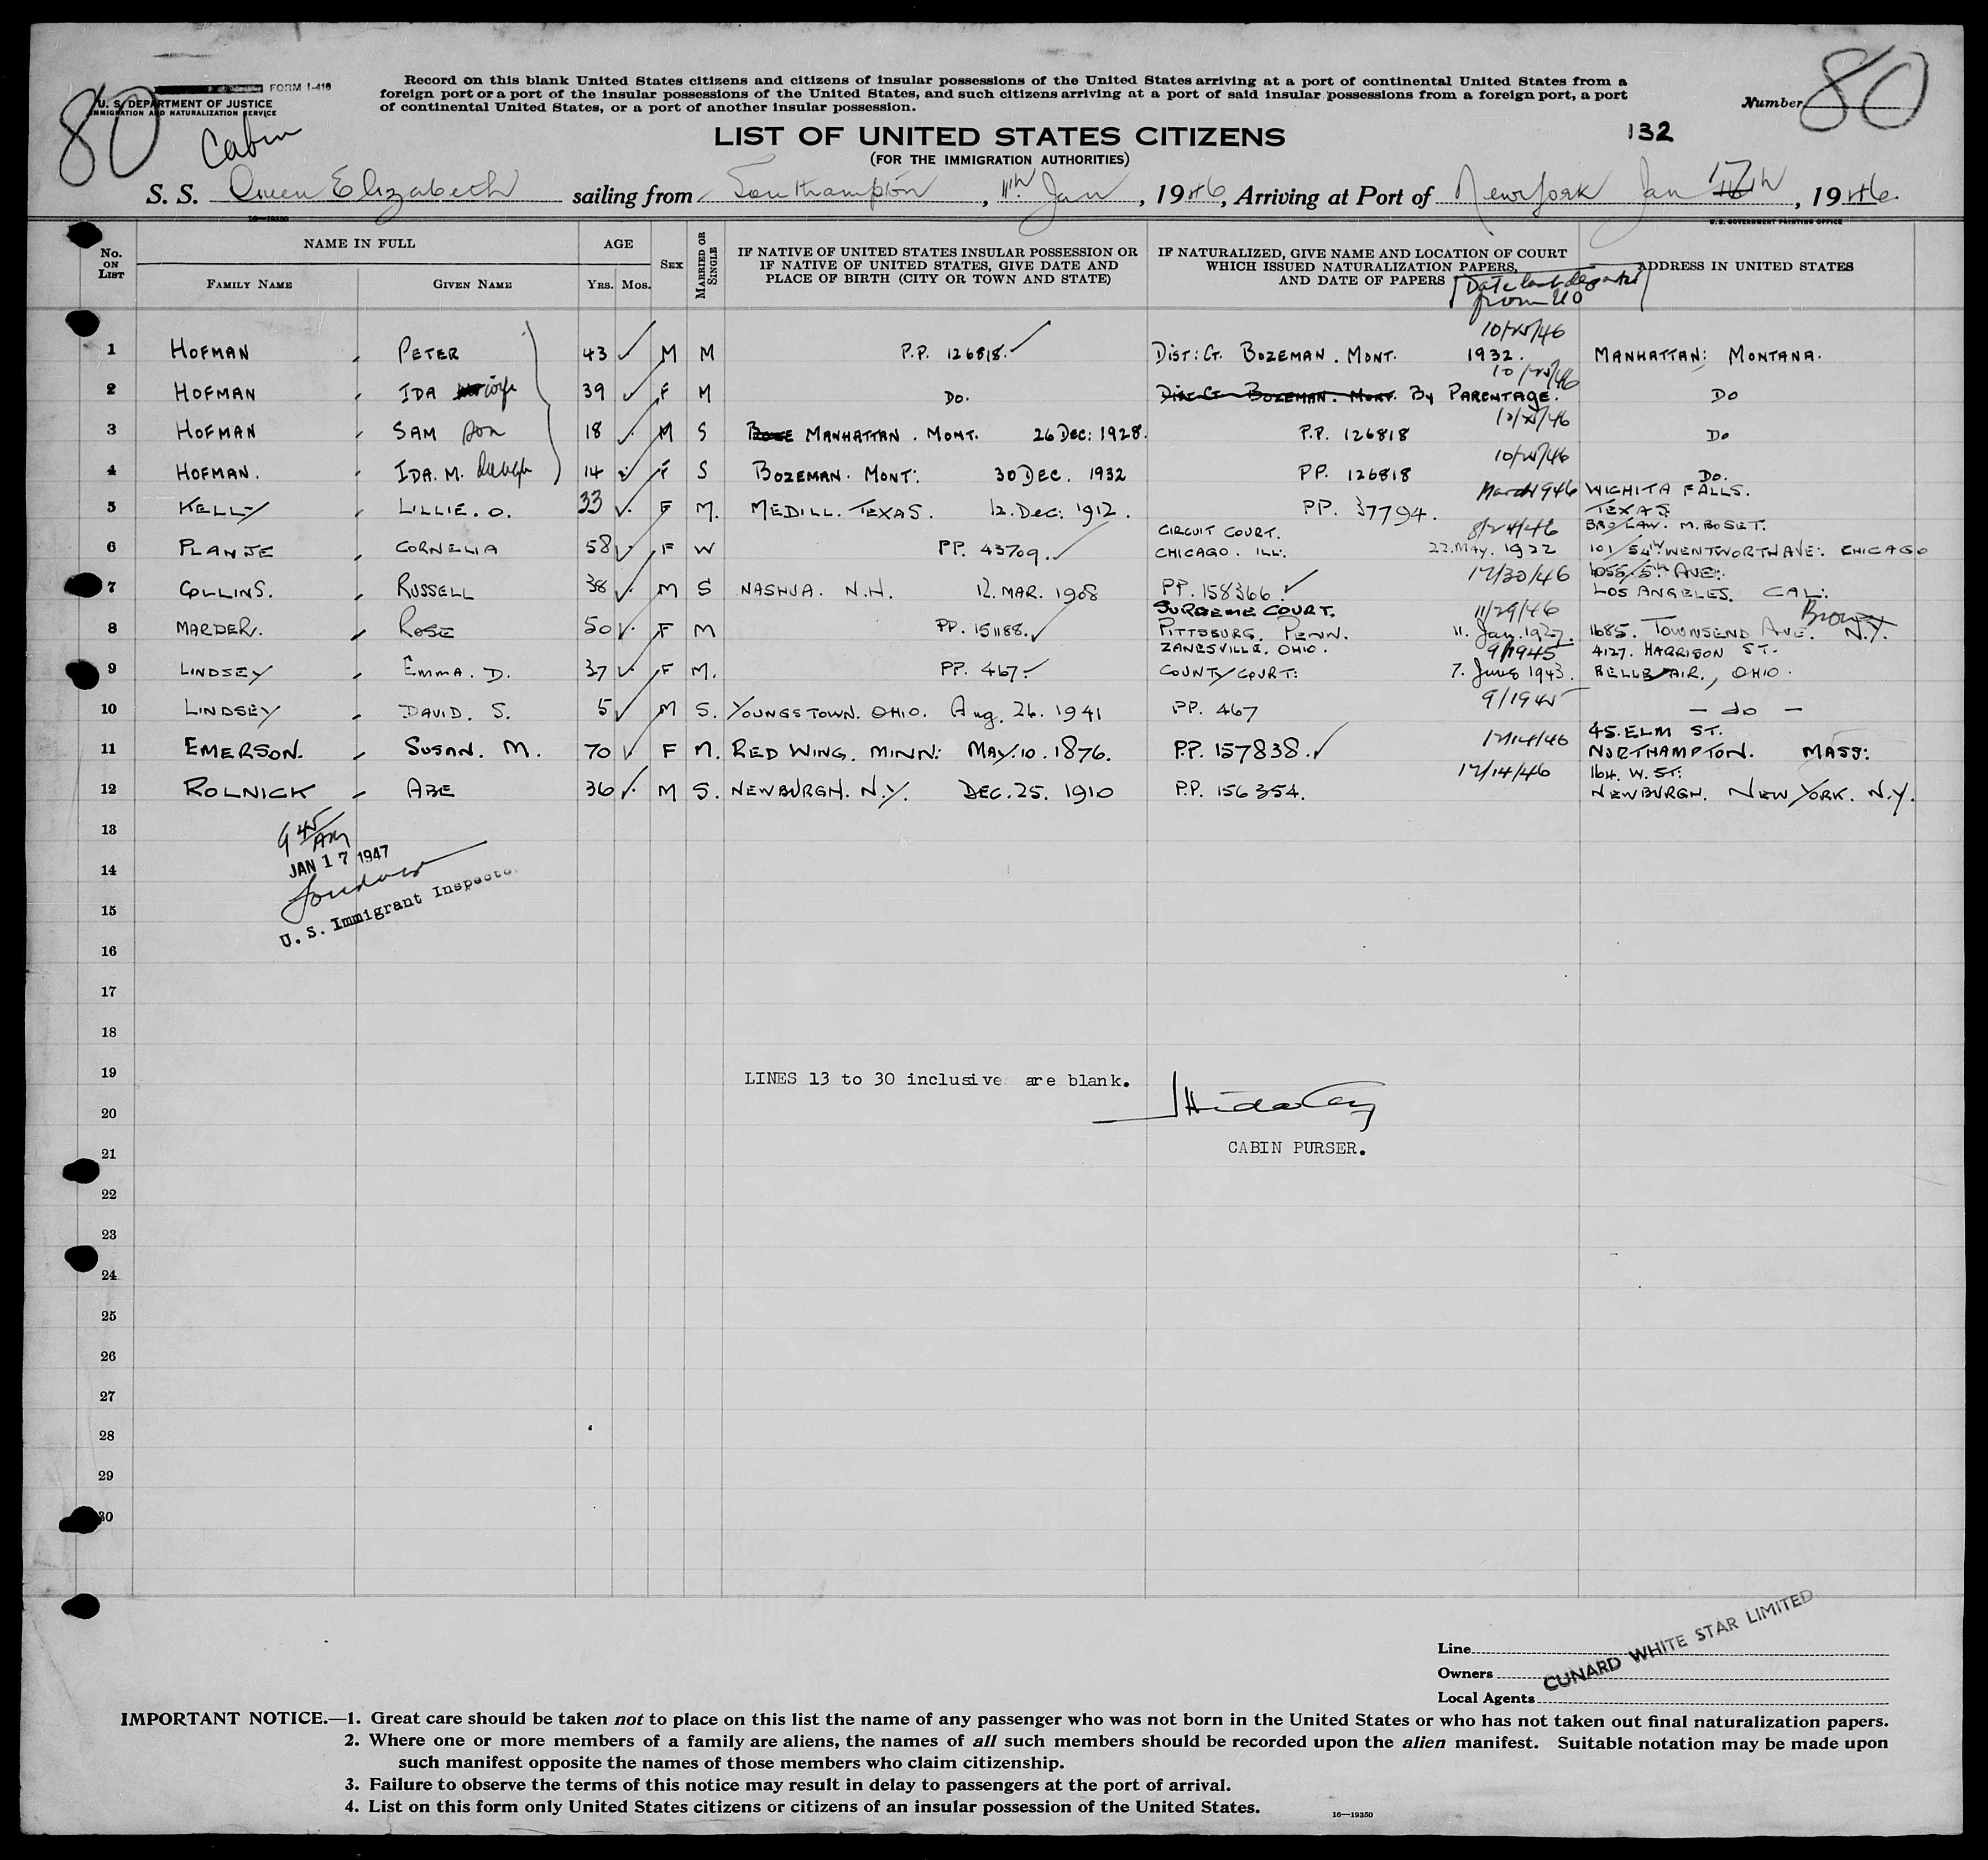 80
FORM I-416
U. S. DEPARTMENT OF JUSTICE
IMMIGRATION AND NATURALIZATION SERVICE
Cabin
Record on this blank United States citizens and citizens of insular possessions of the United States arriving at a port of continental United States from a
foreign port or a port of the insular possessions of the United States, and such citizens arriving at a port of said insular possessions from a foreign port, a port
of continental United States, or a port of another insular possession.
Number 80
132
LIST OF UNITED STATES CITIZENS
(FOR THE IMMIGRATION AUTHORITIES)
S. S. Queen Elizabeth sailing from Southampton, 11th Jan, 1946, Arriving at Port of New York Jan 17th, 1946
16—19350
U. S. GOVERNMENT PRINTING OFFICE
No. ON LIST
NAME IN FULL
FAMILY NAME GIVEN NAME
AGE
YRS. MOS.
SEX
MARRIED OR SINGLE
IF NATIVE OF UNITED STATES INSULAR POSSESSION OR
IF NATIVE OF UNITED STATES, GIVE DATE AND
PLACE OF BIRTH (CITY OR TOWN AND STATE)
IF NATURALIZED, GIVE NAME AND LOCATION OF COURT
WHICH ISSUED NATURALIZATION PAPERS,
AND DATE OF PAPERS
Date last departed
from US
ADDRESS IN UNITED STATES
1 HOFMAN, PETER 43 M M P.P. 126818. DIST: CT. BOZEMAN. MONT. 1932. MANHATTAN: MONTANA.
2 HOFMAN, IDA wife 39 F M DO. DIST CT. BOZEMAN. MONT. BY PARENTAGE. DO
3 HOFMAN, SAM son 18 M S MANHATTAN. MONT. 26 DEC: 1928. P.P. 126818 DO
4 HOFMAN, IDA. M. daugh 14 F S BOZEMAN. MONT: 30 DEC. 1932 PP. 126818 DO.
March 1946 WICHITA FALLS.
5 KELLY, LILLIE. O. 33 F M. MEDILL. TEXAS. 12. DEC: 1912. PP. 37794. TEXAS
CIRCUIT COURT. 8/24/46 BRO/LAW. M. BOSET.
6 PLANJE, CORNELIA 58 F W PP. 43709. CHICAGO. ILL. 22. MAY. 1922 101/54th WENTWORTH AVE: CHICAGO
12/30/46 1055/5th AVE:
7 COLLINS. RUSSELL 38 M S NASHUA. N.H. 12. MAR. 1908 PP. 158366 LOS ANGELES. CAL:
SUPREME COURT. 11/29/46 Bronx
8 MARDER. ROSE 50 F M PP. 151188. PITTSBURG. PENN. 11. Jan. 1927. 1685. TOWNSEND AVE. N.Y.
ZANESVILLE. OHIO. 9/1945 4127. HARRISON ST.
9 LINDSEY, EMMA. D. 37 F M. PP. 467. COUNTY COURT: 7. June 1943. BELLEAIR., OHIO.
9/1945
10 LINDSEY, DAVID. S. 5 M S. YOUNGSTOWN. OHIO. Aug. 26. 1941 PP. 467 — do —
12/14/46 45. ELM ST.
11 EMERSON. SUSAN. M. 70 F M. RED WING. MINN: MAY. 10. 1876. P.P. 157838. NORTHAMPTON. MASS:
12/14/46 164. W. ST:
12 ROLNICK ABE 36 M S. NEWBURGH. N.Y. DEC. 25. 1910 P.P. 156354. NEWBURGH. NEW YORK. N.Y.
13
9 45 AM
JAN 17 1947
14
15
U. S. Immigrant Inspector
16
17
18
19 LINES 13 to 30 inclusive are blank.
20
21 CABIN PURSER.
22
23
24
25
26
27
28
29
30
Line
Owners
Local Agents
CUNARD WHITE STAR LIMITED
IMPORTANT NOTICE.—1. Great care should be taken not to place on this list the name of any passenger who was not born in the United States or who has not taken out final naturalization papers.
2. Where one or more members of a family are aliens, the names of all such members should be recorded upon the alien manifest. Suitable notation may be made upon
such manifest opposite the names of those members who claim citizenship.
3. Failure to observe the terms of this notice may result in delay to passengers at the port of arrival.
4. List on this form only United States citizens or citizens of an insular possession of the United States.
16—19350